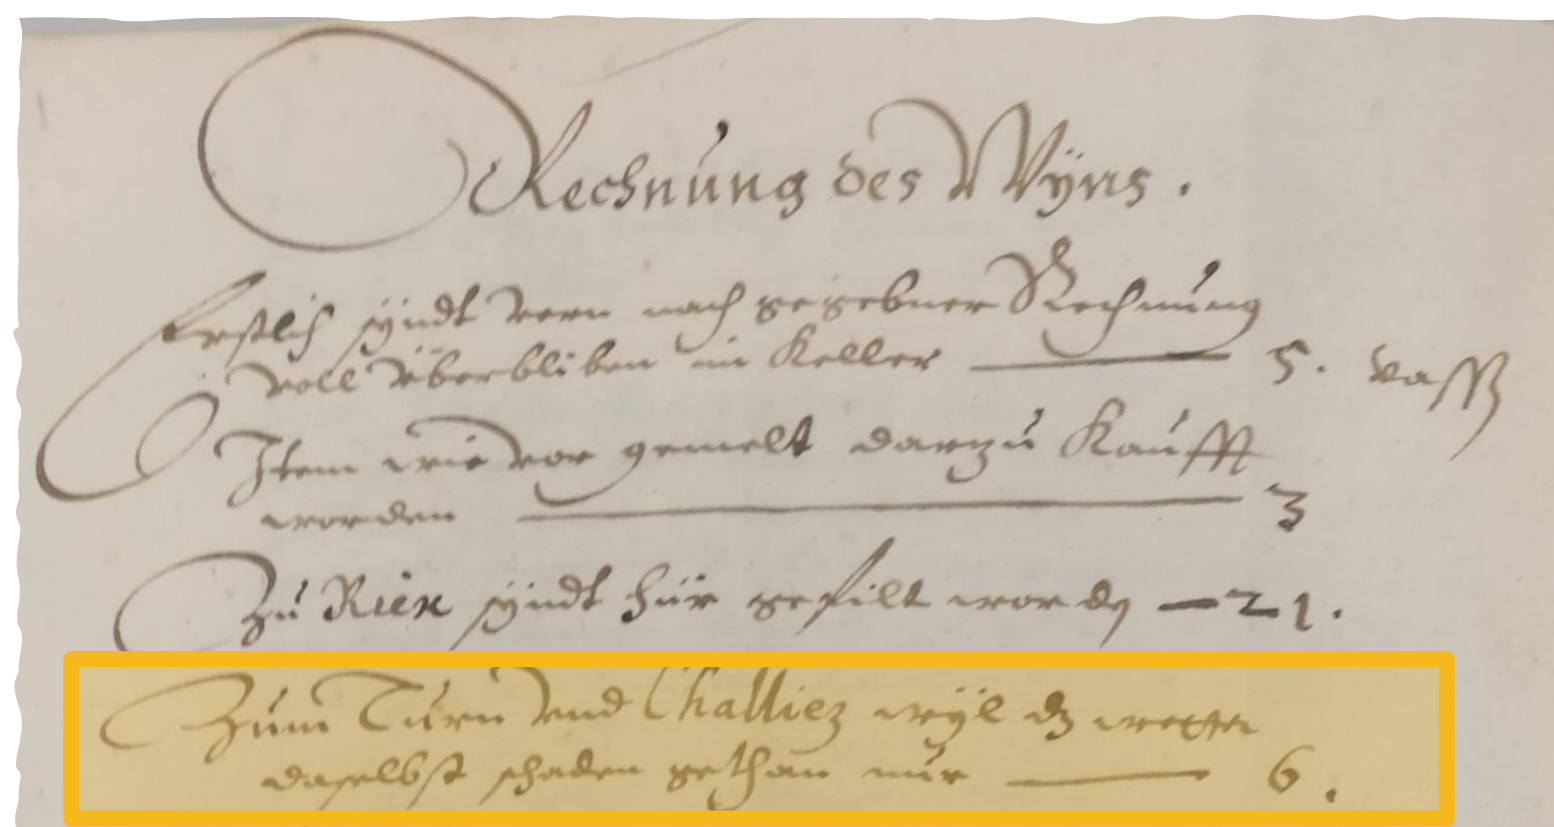 Rechnung des Wÿns.
Erstlich sÿndt vern nach gegebner Rechnung
voll überbliben im Keller 5. vassz
Item wie vor gemelt darzu Kaufft
worden 3
Zu Riex sÿndt hür gefült worden — 21.
Zum Turn vnd Challiez wÿl dz wetter
daselbst schaden gethan nur 6.